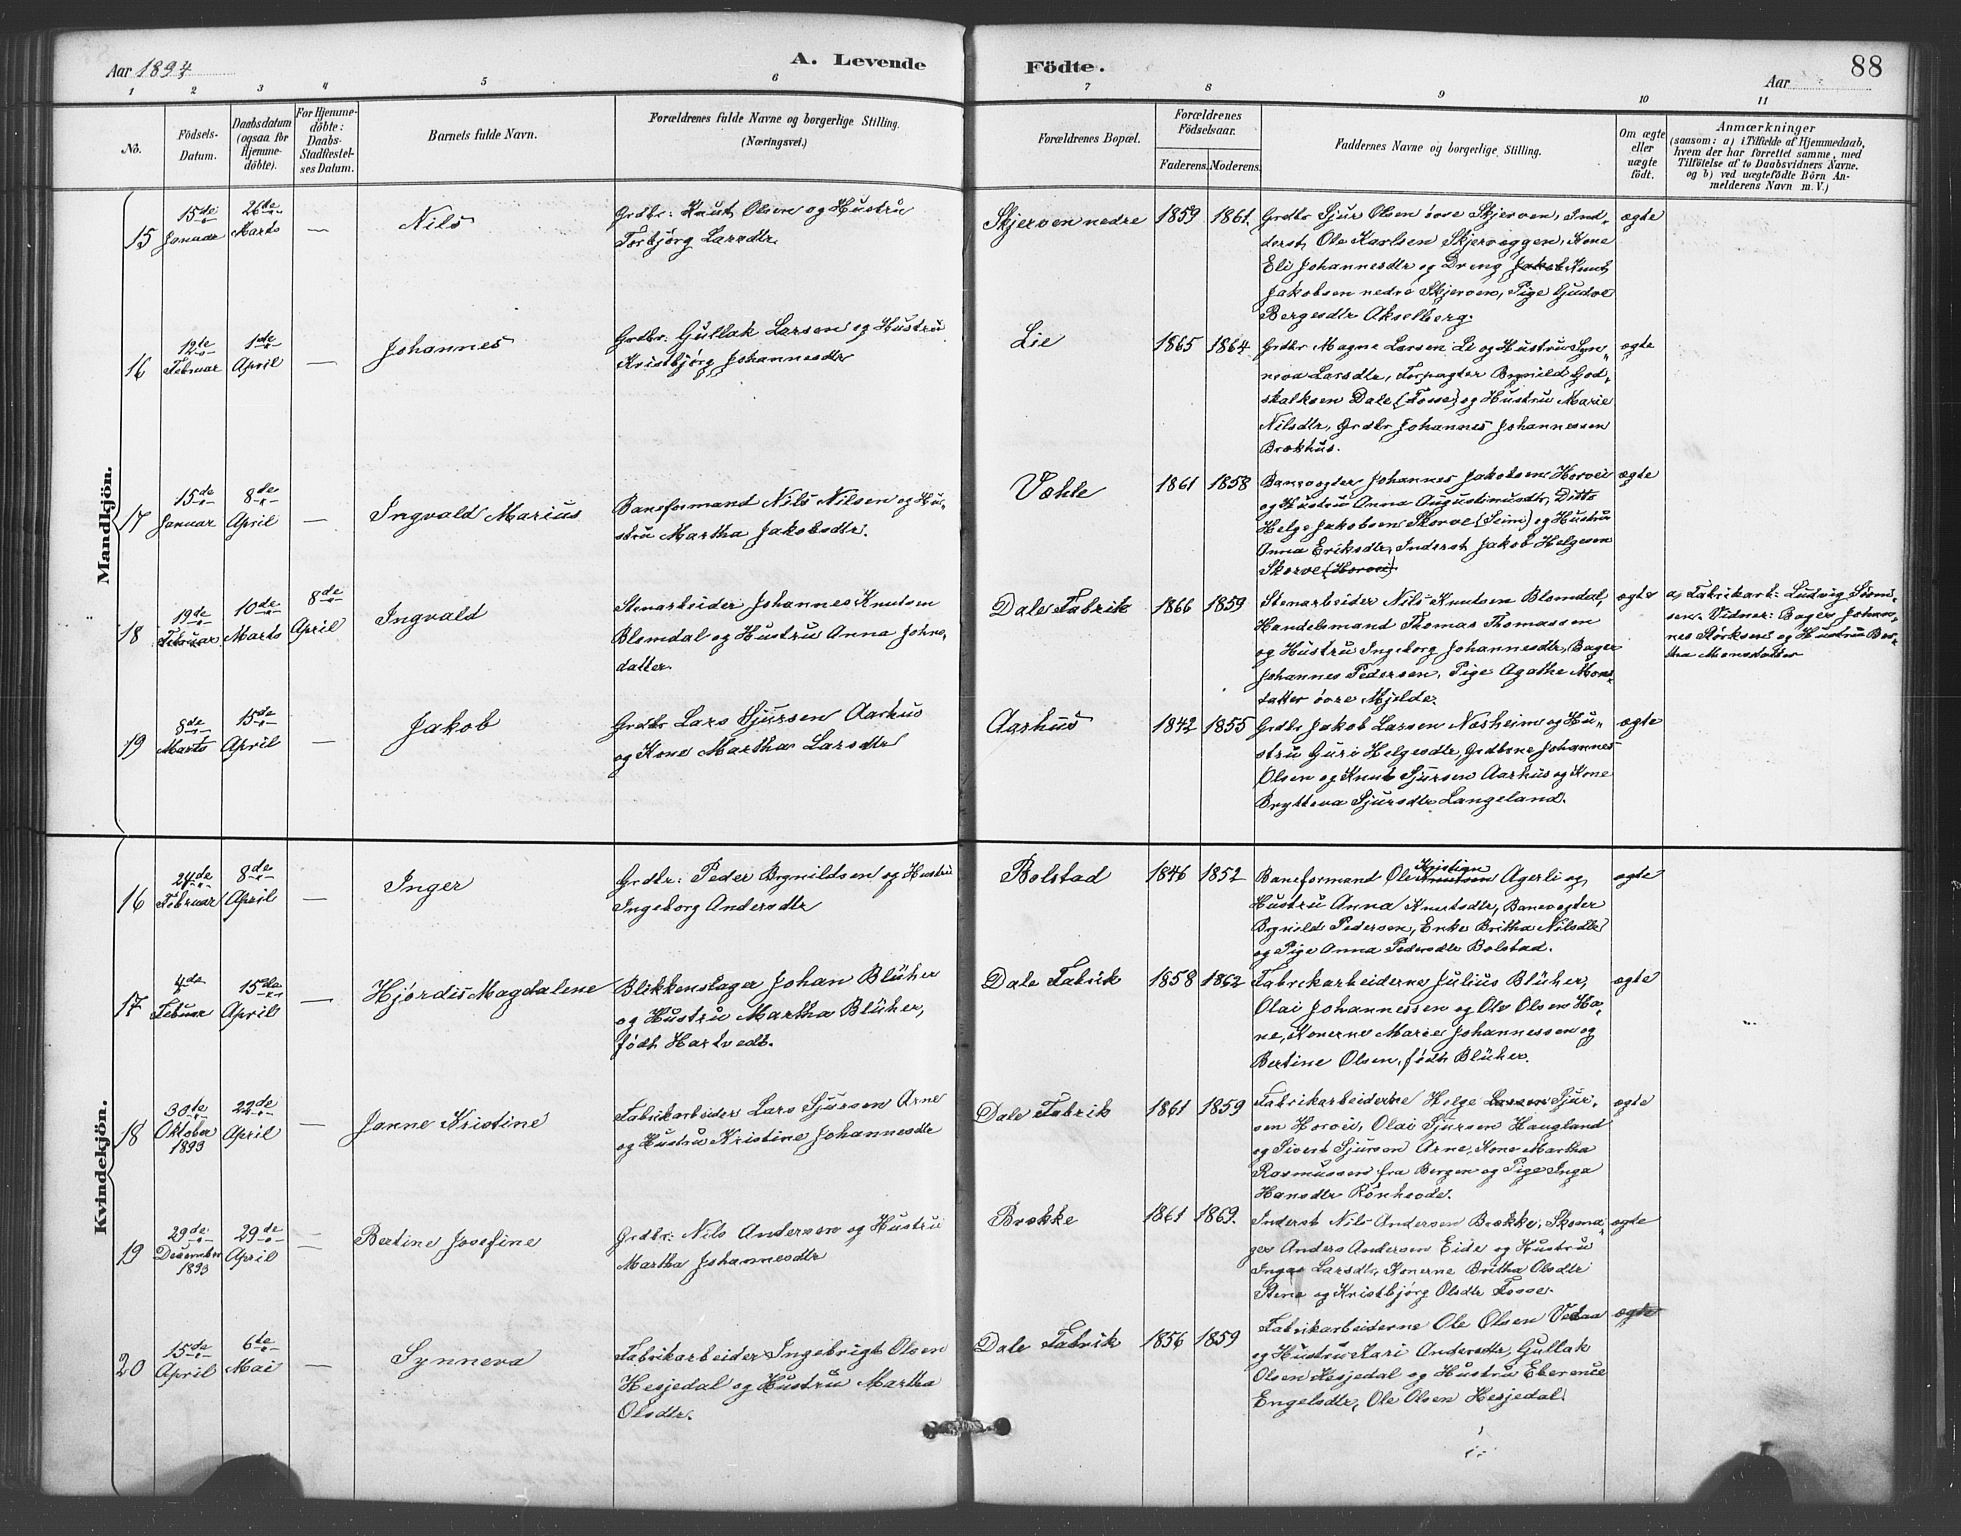 Aar 1894
A. Levende Födte.
Aar
88
1 2 3 4 5 6 7 8 9 10 11
No.
Födsels-
Datum.
Daabsdatum
(ogsaa for
Hjemme-
döbte).
For Hjemme-
döbte:
Daabs-
Stadfæstel-
ses Datum.
Barnets fulde Navn.
Forældrenes fulde Navne og borgerlige Stilling.
(Næringsvei.)
Forældrenes Bopæl.
Forældrenes
Födselsaar.
Faderens. Moderens.
Faddernes Navne og borgerlige Stilling.
Om ægte
eller
uægte
födt.
Anmærkninger
(saasom: a) i Tilfælde af Hjemmedaab,
hvem der har forrettet samme, med
Tilföielse af to Daabsvidners Navne.
og b) ved uægtefödte Börn An-
melderens Navn m. V.)
Mandkjön.
15
15de
Januar
26de
Marts
—
Nils
Grdbr: Knut Olsen og Hustru
Torbjörg Larsdtr.
Skjerven nedre
1859
1861.
Grdbr Sjur Olsen övre Skjerven, Ind-
derst Ole Karlsen Skjerveggen, Kone
Eli Johannesdtr og Dreng Jakob Knut
Jakobsen nedre Skjerven, Pige Gudve
Bergesdtr Akselberg.
ægte
16
12te
Februar
1de
April
—
Johannes
Grdbr: Gullak Larsen og Hustru
Kristbjörg Johannesdtr
Lie
1865
1864.
Grdbr Magne Larsen Li og Hustru Syn-
neva Larsdtr, Forpagter Brynild God-
skalksen Dale (Fosse) og Hustru Marie
Nilsdtr, Grdbr Johannes Johannessen
Brækhus.
ægte
17
15de
Januar
8de
April
—
Ingvald Marius
Baneformand Nils Nilsen og Hu-
stru Martha Jakobsdtr.
Væhle
1861
1858
Banevogter Johannes Jakobsen Horvei
og Hustru Anna Augustinusdtr, Ditto
Helge Jakobsen Skorve (Seim) og Hustru
Anna Eriksdtr, Inderst Jakob Helgesen
Skorve (Horvei).
ægte
18
19de
Februar
10de
Marts
8de
April
Ingvald
Stenarbeider Johannes Knutsen
Blomdal og Hustru Anna Johns-
datter.
Dale Fabrik
1866
1859
Stenarbeider Nils Knutsen Blomdal,
Handelsmand Thomas Thomassen
og Hustru Ingeborg Johannesdtr, Bager
Johannes Pedersen, Pige Agathe Mons-
datter övre Mjelde.
ægte
a, Fabrikarb: Ludvig Simon-
sen. Vidner: Bager Johan-
nes Störksen og Hustru Ber-
tha Monsdatter
19
8de
Marts
15de
April
—
Jakob
Grdbr Lars Sjursen Aarhus
og Kone Martha Larsdtr
Aarhus
1842
1855
Grdbr Jakob Larsen Næsheim og Hu-
stru Guri Helgesdtr, Grdbrne Johannes
Olsen og Knut Sjursen Aarhus og Kone
Brytteva Sjursdtr Langeland.
ægte
Kvindekjön.
16
24de
Februar
8de
April
—
Inger
Grdbr: Peder Brynildsen og Hustru
Ingeborg Andersdtr
Bolstad
1846
1852
Baneformand Ole Knutsen Kristian Agerli og
Hustru Anna Knutsdtr, Banevogter
Brynild Pedersen, Enke Britha Nilsdtr
og Pige Anna Pedersdtr Bolstad.
ægte
17
4de
Februar
15de
April
—
Hjördis Magdalene
Blikkenslager Johan Blüher
og Hustru Martha Blüher,
födt Hartvedt.
Dale Fabrik
1858
1862
Fabrikarbeiderne Julius Blüher,
Olai Johannessen og Ole Olsen Ha-
ne, Konerne Marie Johannessen og
Bertine Olsen, födt Blüher.
ægte
18
30te
Oktober
1893
22de
April
—
Janne Kristine
Fabrikarbeider Lars Sjursen Arne
og Hustru Kristine Johannesdtr
Dale Fabrik
1861
1859
Fabrikarbeiderne Helge Larsen Sjur-
sen Horvei, Olai Sjursen Haugland
og Sivert Sjursen Arne, Kone Martha
Rasmussen fra Bergen og Pige Inga
Hansdtr Rönhovde.
ægte
19
29de
December
1893
29de
April
—
Bertine Josefine
Grdbr: Nils Andersen og Hustru
Martha Johannesdtr
Brække
1861
1869.
Inderst Nils Andersen Brække, Skoma-
ger Anders Andersen Eide og Hustru
Inga Larsdtr, Konerne Britha Olsdtr
Stene og Kristbjörg Olsdtr Fosse.
ægte
20
15de
April
6te
Mai
—
Synneva
Fabrikarbeider Ingebrigt Olsen
Hesjedal og Hustru Martha
Olsdtr.
Dale Fabrik
1856
1859
Fabrikarbeiderne Ole Olsen Vedaa
og Hustru Kari Andersdtr, Gullak
Olsen Hesjedal og Hustru Eberence
Engelsdtr, Ole Olsen Hesjedal.
ægte